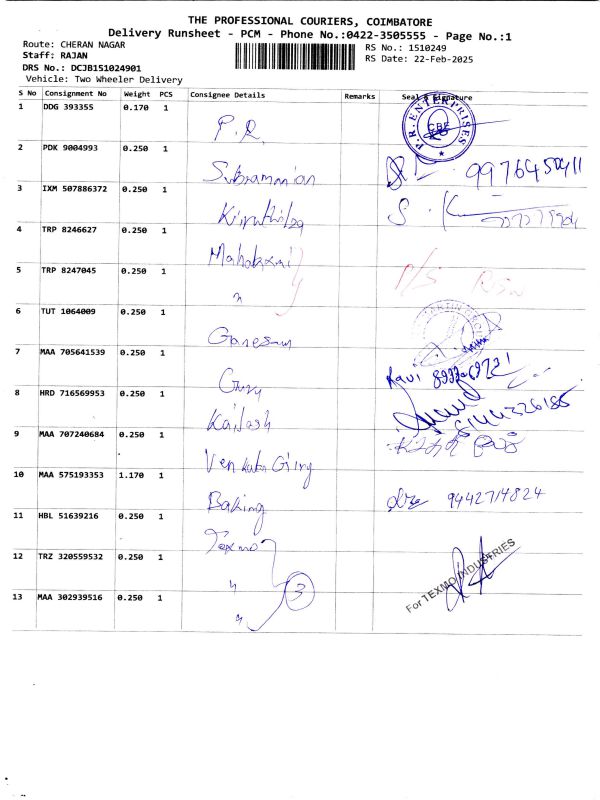 THE PROFESSIONAL COURIERS, COIMBATORE
Delivery Runsheet - PCM - Phone No.:0422-3505555 - Page No.:1
Route: CHERAN NAGAR RS No.: 1510249
Staff: RAJAN RS Date: 22-Feb-2025
DRS No.: DCJB151024901
Vehicle: Two Wheeler Delivery
S No Consignment No Weight PCS Consignee Details Remarks Seal & Signature
1 DDG 393355 0.170 1 P.R. P.R. ENTERPRISES CBE
2 PDK 9004993 0.250 1 Subramanian 9976450411
3 IXM 507886372 0.250 1 Kiruthika S.K
4 TRP 8246627 0.250 1 Mahalaxmi
5 TRP 8247045 0.250 1 "
6 TUT 1064009 0.250 1 Ganesan
7 MAA 705641539 0.250 1 Guru Ravi
8 HRD 716569953 0.250 1 Kailash
9 MAA 707240684 0.250 1 Venkata Giry
10 MAA 575193353 1.170 1 Baking 9442714824
11 HBL 51639216 0.250 1 Texmo
12 TRZ 320559532 0.250 1 " 3 For TEXMO INDUSTRIES
13 MAA 302939516 0.250 1 "